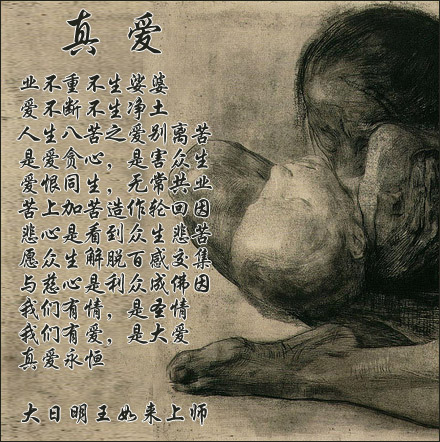 真 爱
业不重不生娑婆
爱不断不生净土
人生八苦之爱别离苦
是爱贪心，是害众生
爱恨同生，无常共业
苦上加苦，造作轮回因
悲心是看到众生悲苦
愿众生解脱百感交集
与慈心是利众成佛因
我们有情，是圣情
我们有爱，是大爱
真爱永恒
大日明王如来上师